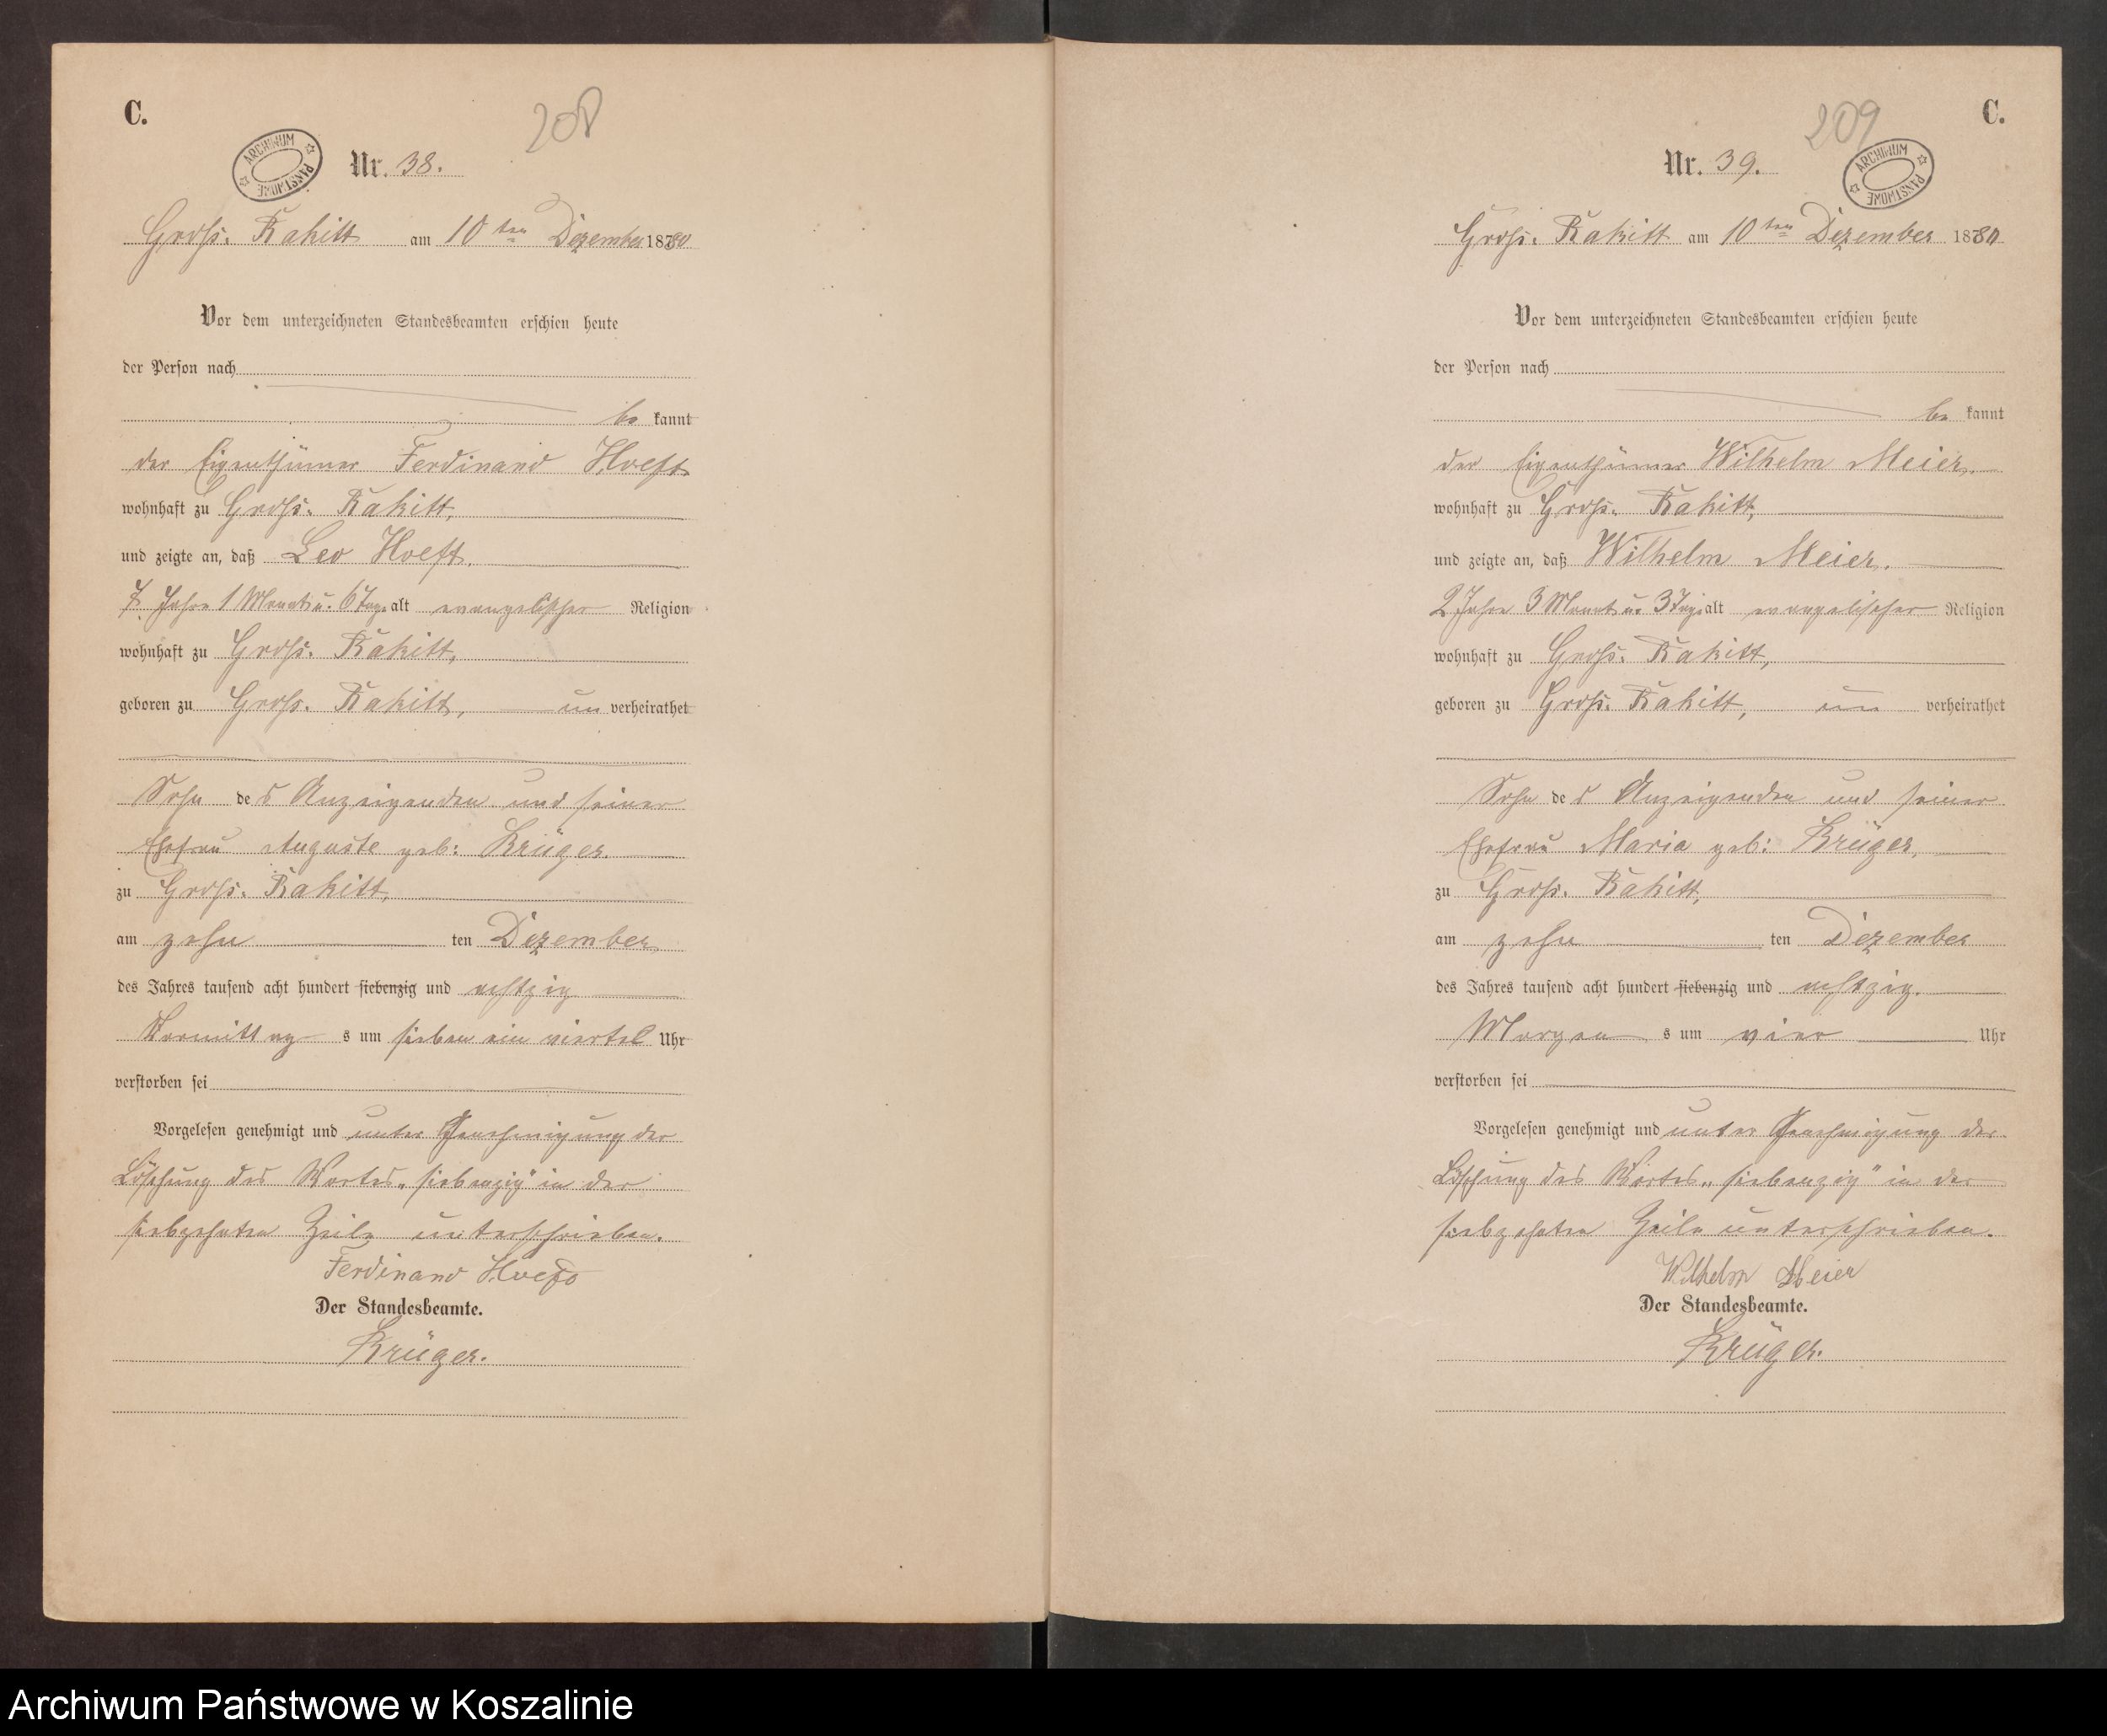 C.
208
ARCHIWUM PAŃSTWOWE
Nr. 38.
Groß-Rakitt am 10ten Dezember 1880
Vor dem unterzeichneten Standesbeamten erschien heute
der Person nach
be kannt
der Eigenthümer Ferdinand Hoeft
wohnhaft zu Groß-Rakitt,
und zeigte an, daß Leo Hoeft.
7 Jahre 1 Monat u. 6 Tage alt evangelischer Religion
wohnhaft zu Groß-Rakitt,
geboren zu Groß-Rakitt, un verheirathet
Sohn des Anzeigenden und seiner
Ehefrau Auguste geb: Krüger.
zu Groß-Rakitt,
am zehn ten Dezember
des Jahres tausend acht hundert siebenzig und achtzig
Vormittag s um sieben ein viertel Uhr
verstorben sei
Vorgelesen genehmigt und unter Genehmigung der
Löschung des Wortes „siebenzig" in der
siebzehnten Zeile unterschrieben.
Ferdinand Hoeft
Der Standesbeamte.
Krüger.
C.
209
ARCHIWUM PAŃSTWOWE
Nr. 39.
Groß-Rakitt am 10ten Dezember 1880
Vor dem unterzeichneten Standesbeamten erschien heute
der Person nach
be kannt
der Eigenthümer Wilhelm Meier,
wohnhaft zu Groß-Rakitt,
und zeigte an, daß Wilhelm Meier.
2 Jahre 3 Monat u. 3 Tage alt evangelischer Religion
wohnhaft zu Groß-Rakitt,
geboren zu Groß-Rakitt, un verheirathet
Sohn des Anzeigenden und seiner
Ehefrau Maria geb: Krüger,
zu Groß-Rakitt,
am zehn ten Dezember
des Jahres tausend acht hundert siebenzig und achtzig.
Morgen s um vier Uhr
verstorben sei
Vorgelesen genehmigt und unter Genehmigung der
Löschung des Wortes „siebenzig" in der
siebzehnten Zeile unterschrieben.
Wilhelm Meier
Der Standesbeamte.
Krüger.
Archiwum Państwowe w Koszalinie